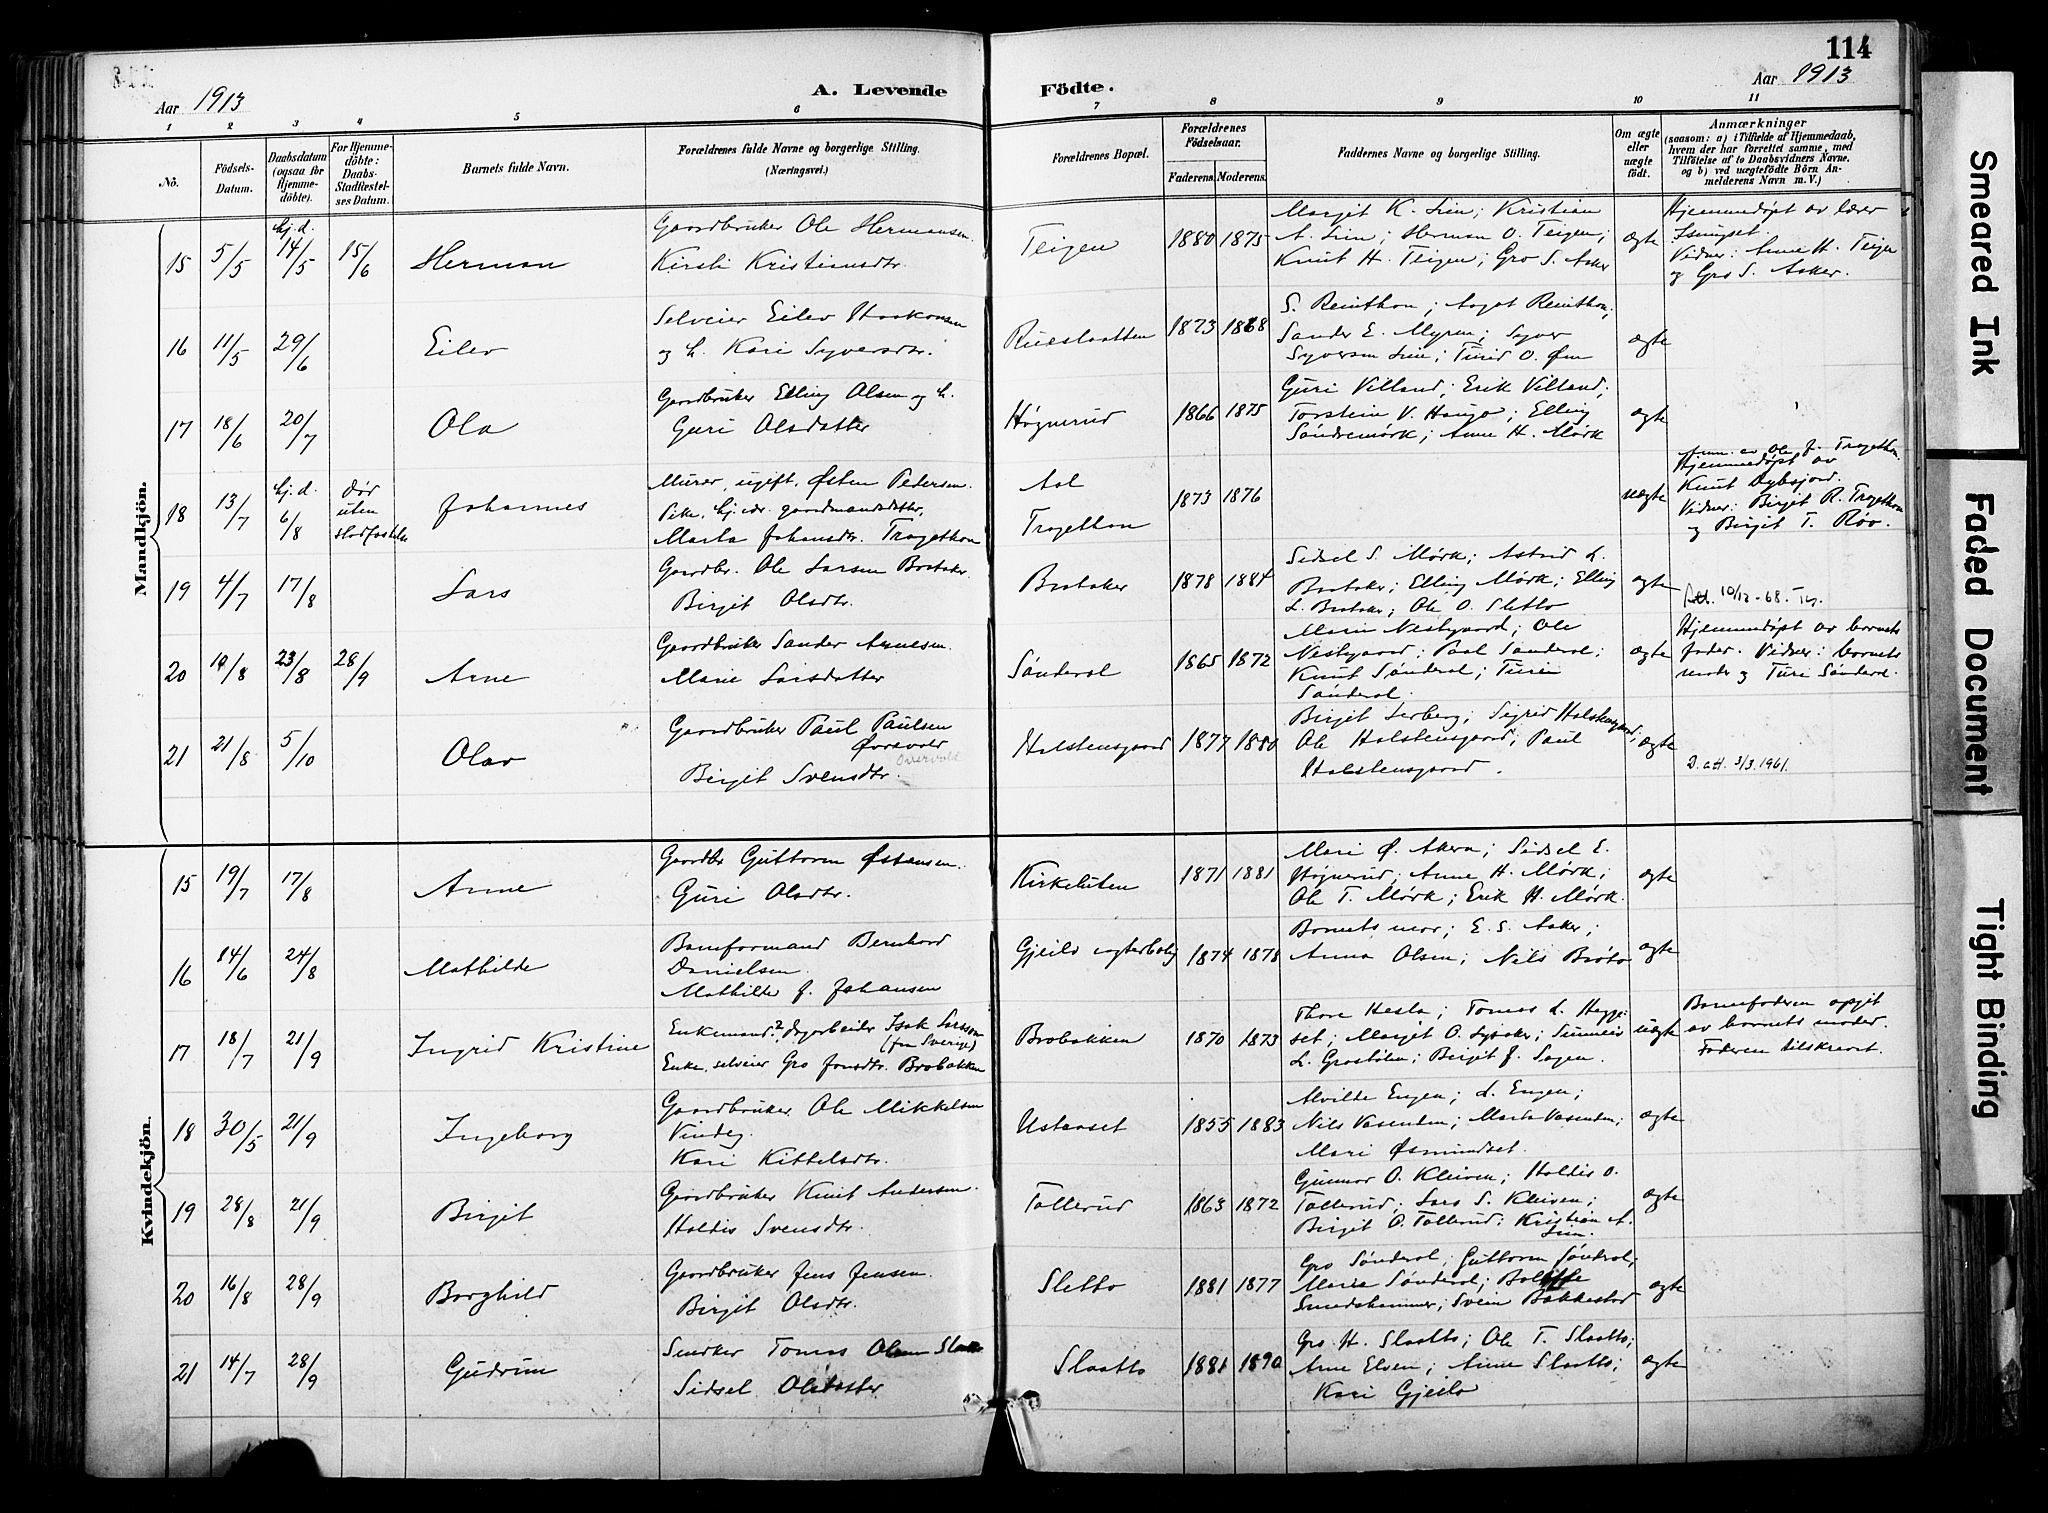 114
Aar 1913
A. Levende Födte.
Aar 1913
1 2 3 4 5 6 7 8 9 10 11
No.
Födsels-Datum.
Daabsdatum (ogsaa for Hjemme-döbte).
For Hjemme-döbte: Daabs-Stadfæstel-ses Datum.
Barnets fulde Navn.
Forældrenes fulde Navne og borgerlige Stilling.
(Næringsvei.)
Forældrenes Bopæl.
Forældrenes Födselsaar.
Faderens. Moderens.
Faddernes Navne og borgerlige Stilling.
Om ægte eller uægte födt.
Anmærkninger
(saasom: a) i Tilfælde af Hjemmedaab,
hvem der har forrettet samme, med
Tilföielse af to Daabsvidners Navne,
og b) ved uægtefödte Börn An-
melderens Navn m. V.)
Mandkjön.
15 5/5 hj.d. 14/5 15/6 Herman
Gaardbruker Ole Hermansen.
Kirsti Kristiansdtr.
Teigen 1880 1875
Margit K. Lien; Kristian
A. Lien; Herman O. Teigen;
Knut H. Teigen; Gro S. Aaker
ægte
Hjemmedøpt av lærer
Vidner: Anne H. Teigen
og Gro S. Aaker.
16 11/5 29/6 Eilev
Selveier Eilev Haakonsen
og h. Kari Syversdtr.
Rueslaatten 1873 1868
S. Reinthon; Aagot Reinthon;
Sander E. Myren; Syver
Syversen Lien; Turid O. Øen
ægte
17 18/6 20/7 Ola
Gaardbruker Elling Olsen og h.
Guri Olsdatter
Høgnerud 1866 1875
Guri Villand; Erik Villand;
Torstein V. Hauge; Elling
Søndremørk; Anne H. Mørk
ægte
18 13/7 hj.d. 6/8 Dør uten stadfæstelse Johannes
Murer, ugift, Østen Pedersen.
Pike, hj.vær. gaardmandsdatter,
Marta Johansdtr. Tragethon
Aal
Tragethon
1873 1876
uægte
Anm. av Ole J. Tragethon
Hjemmedøpt av
Knut Dybsjord.
Vidner: Birgit R. Tragethon
og Birgit T. Røo.
19 4/7 17/8 Lars
Gaardbr. Ole Larsen Brataker
Birgit Olsdtr.
Brataker 1878 1884
Sidsel S. Mørk; Astrid L.
Brataker; Elling Mørk; Elling
L. Brataker; Ole O. Sletto
ægte
Att. 10/12-68.
20 14/8 23/8 28/9 Arne
Gaardbruker Sander Arnesen.
Marie Larsdatter
Sønderal 1865 1872
Marie Nestegaard; Ole
Nestegaard; Paal Sønderal;
Knut Sønderal; Turi
Sønderal.
ægte
Hjemmedøpt av barnets
fader. Vidner: barnets
moder og Turi Sønderal.
21 21/8 5/10 Olav
Gaardbruker Paul Paulsen
Øvrevold
Birgit Svensdtr.
Holstensgaard 1877 1880
Birgit Lerberg; Sigrid Holstensgaard;
Ole Holstensgaard; Paul
Holstensgaard.
ægte
D. att. 3/3.1961.
Kvindekjön.
15 19/7 17/8 Anne
Gaardbr Guttorm Østensen.
Guri Olsdtr.
Kirkeluten 1871 1881
Mari Ø. Akera; Sidsel E.
Høgnerud; Anne H. Mørk;
Ole T. Mørk; Erik H. Mørk.
ægte
16 14/6 24/8 Mathilde
Baneformand Bernhard
Danielsen.
Mathilde J. Johansen
Gjeilo vogterbolig 1874 1878
Barnets mor; E. S. Aaker;
Anna Olsen; Nils Brøto
ægte
17 18/7 21/9 Ingrid Kristine
Enkemand?, dagarbeider Isak Larsson
(fra Sverige)
Enke, selveier Gro Jonsdtr. Brobakken
Brobakken 1870 1873
Thore Hesla; Tomas L. Hegge-
set; Margit O. Lybaker; Sunneiv
L. Grostølen; Birgit J. Sagen.
uægte
Barnefaderen opgit
av barnets moder.
Faderen tilskrevet.
18 30/5 21/9 Ingeborg
Gaardbruker Ole Mikkelsen
Vindeg.
Kari Kittelsdtr.
Ustaoset 1855 1883
Alvilde Engen; L. Engen;
Nils Vasenden; Marta Vasenden;
Mari Øsmundset.
ægte
19 28/8 21/9 Birgit
Gaardbruker Knut Andersen.
Holdis Svensdtr.
Tollerud 1863 1872
Gunnar O. Kleiven; Holdis O.
Tollerud; Lars S. Kleiven;
Birgit O. Tollerud; Kristian A.
Lien.
ægte
20 16/8 28/9 Borghild
Gaardbruker Jens Jensen.
Birgit Olsdtr.
Sletto 1881 1877
Gro Sønderal; Guttorm Sønderal;
Maria Sønderal;
Smedshammer; Svein Bakkestad
ægte
21 14/7 28/9 Gudrun
Snedker Tomas Olsen Slaatto
Sidsel Olsdatter
Slaatto 1881 1890
Gro H. Slaatto; Ole T. Slaatto;
Arne Elsen; Anne Slaatto;
Kari Gjeilo
ægte
Smeared Ink
Faded Document
Tight Binding